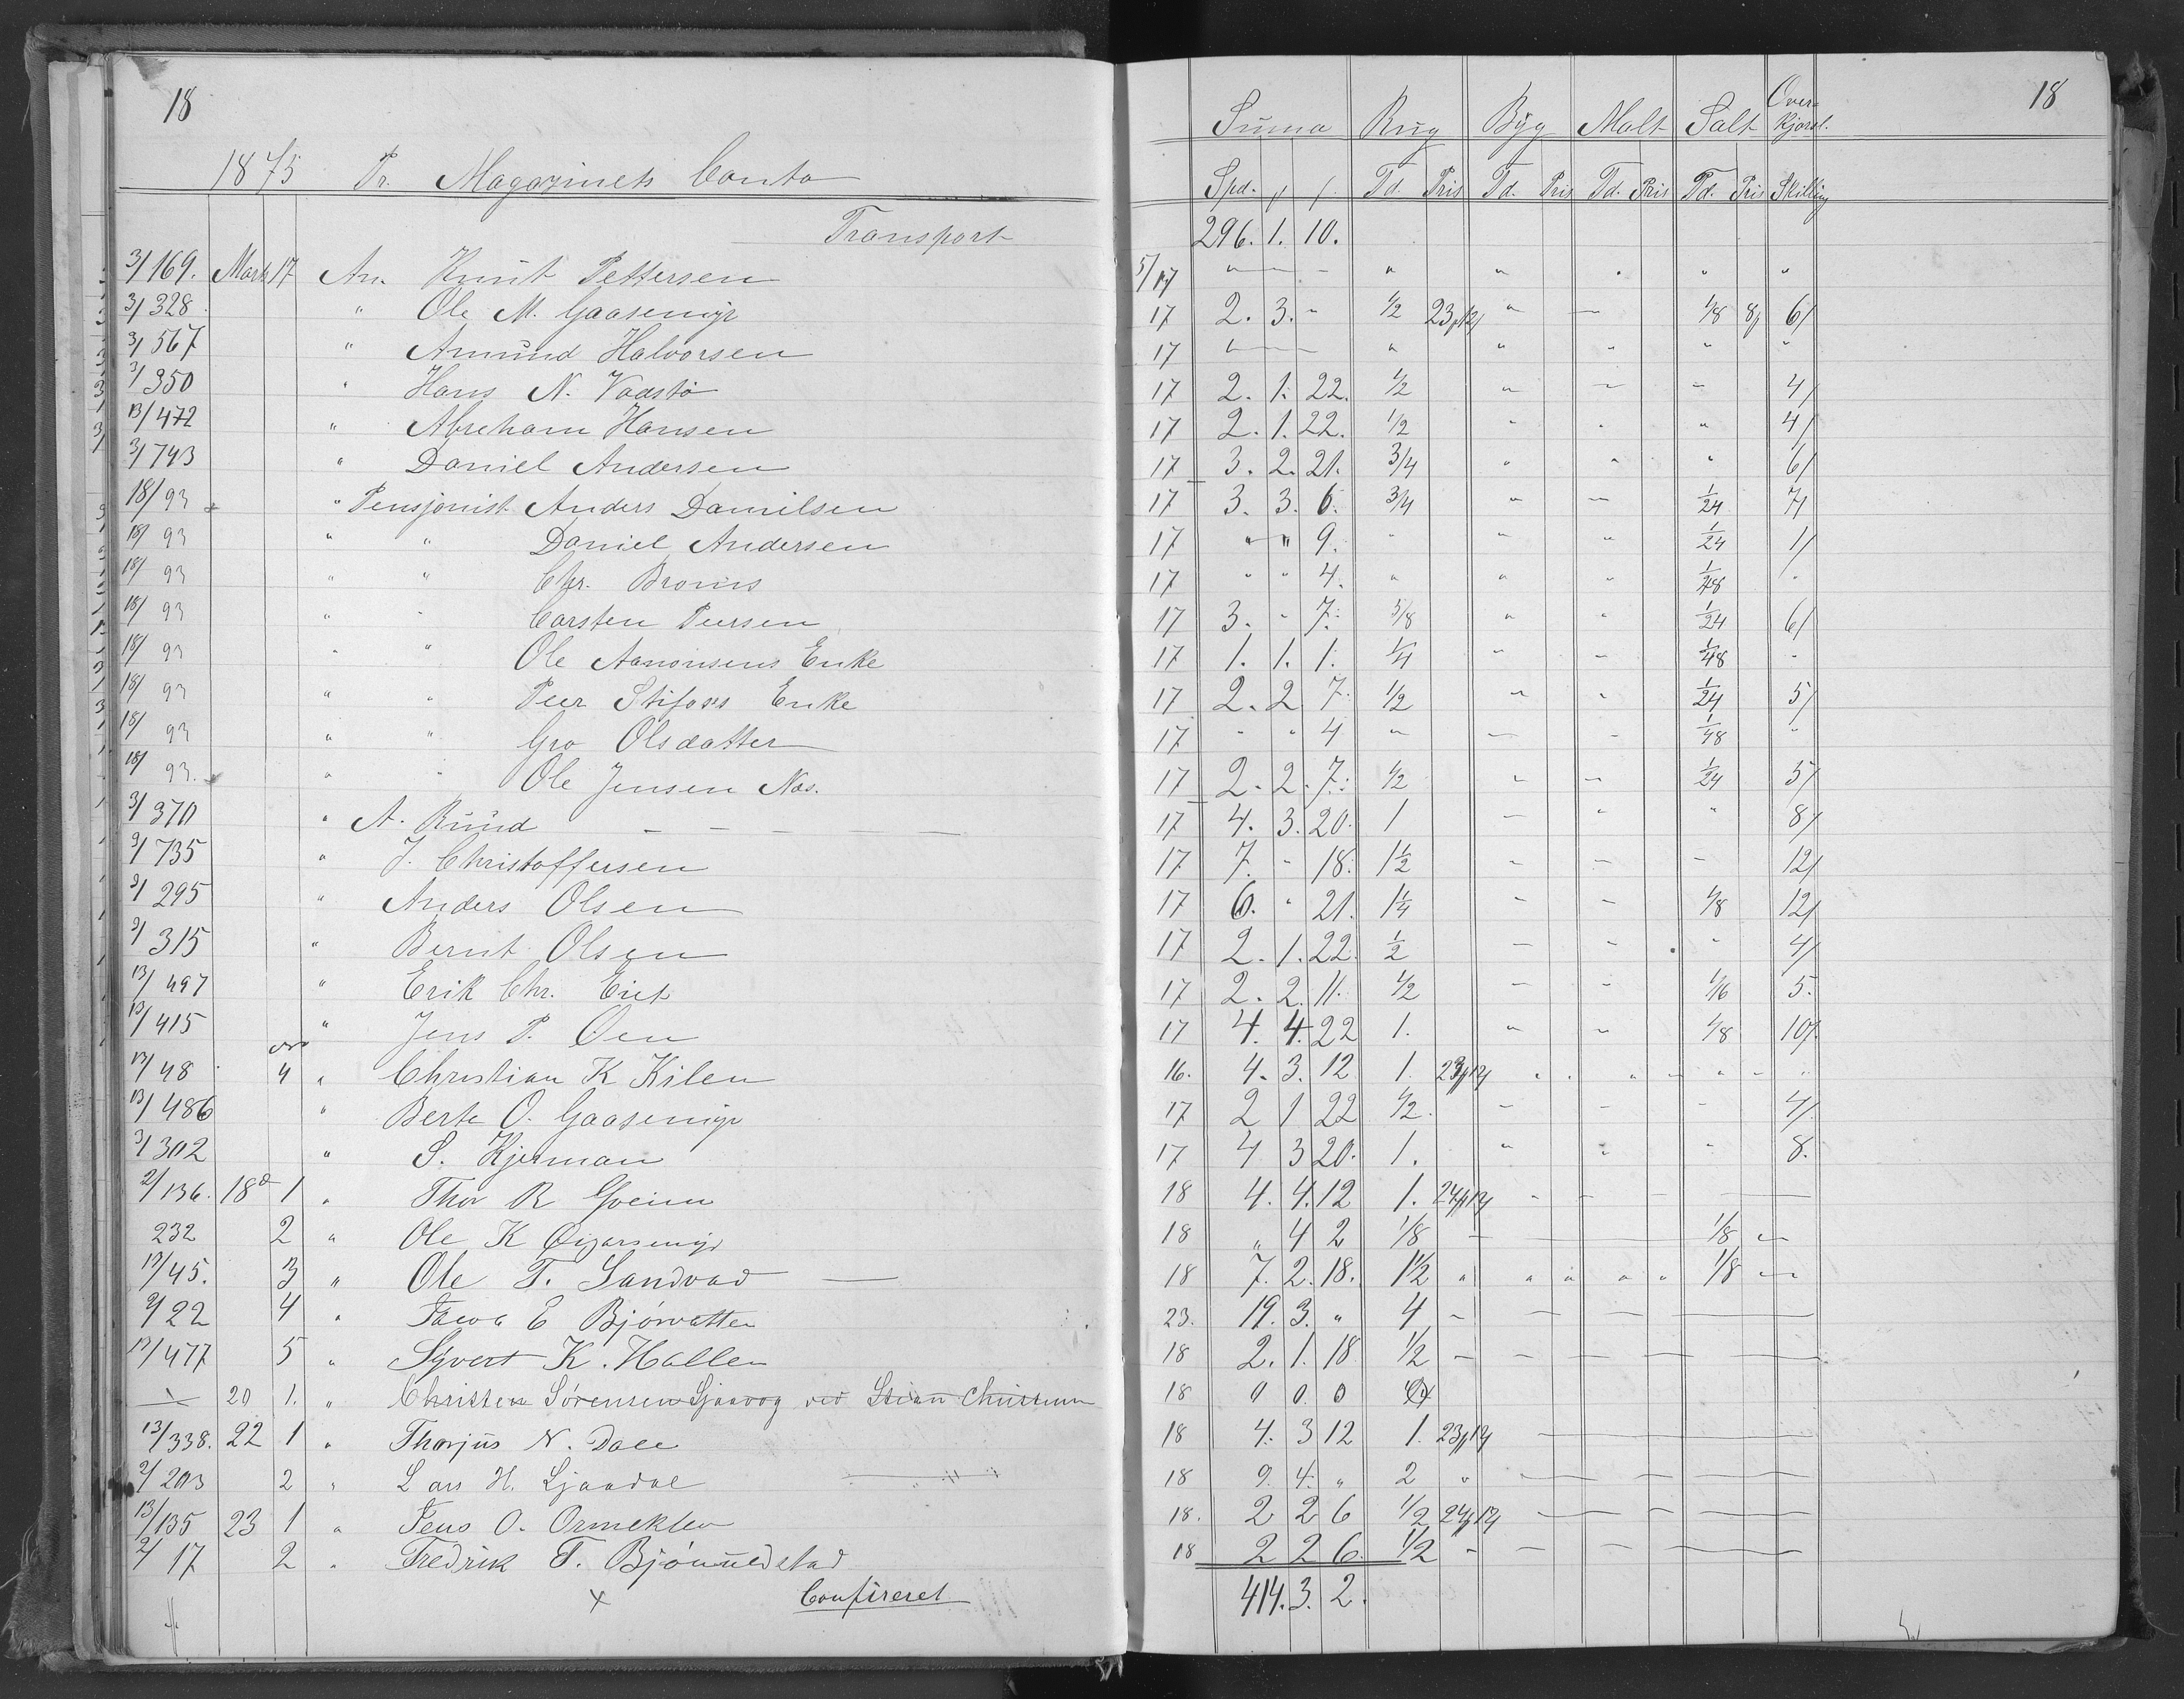 18
1875 Pr. Magazinets Conto
Transport
3/169. Marts 17 An. Knut Pettersen
3/328 " Ole M. Gaasemyr
3/567 " Amund Halvorsen
3/350 " Hans N. Vadstø
13/472 " Abreham Hansen
3/743 " Daniel Andersen
18/93 " Pensjonist Anders Danielsen
18/93 " " Daniel Andersen
18/93 " " Chr. Broms
18/93 " " Carsten Peersen
18/93 " " Ole Aanonsens Enke
18/93 " " Peer Stifoss Enke
18/93 " " Gro Olsdatter
18/93. " " Ole Jensen Næs.
3/370 " A. Ruud
9/735 " J. Christoffersen
9/295 " Anders Olsen
9/315 " Bernt Olsen
13/497 " Erik Chr. Eiet
13/415 " Jens P. Oen
13/48 4 " Christian K Kilen
13/486 " Berte O. Gaasemyr
3/302 " S. Kjerman
2/136. 18 1 " Thor R Gveim
232 2 " Ole K
13/45. 3 " Ole T. Sandvad
9/22 4 " E Bjørvatten
13/477 5 " Syvert K. Hallen
20 1. " Christen Sørensen Sjaavog ved
13/338. 22 1 " Thorjus N. Dale
2/203 2 " Lars H. Ljaadal
13/135 23 1 " Jens O. Ormeklev
2/17 2 " Fredrik T. Bjønnedstad
x Confireret
18
Suma Rug Byg Malt Salt Over-kjørsl.
Spd. Td. Pris Td. Pris Td. Pris Td. Pris Skilling
296. 1. 10.
5/17 " " " " " "
17 2. 3. " 1/2 23/12 " " 1/8 8/ 6/
17 " " " " " "
17 2. 1. 22. 1/2 " " " 4/
17 2. 1. 22. 1/2 " " " 4/
17 3. 2. 21. 3/4 " " " 6/
17 3. 3. 6. 3/4 " " 1/24 7/
17 " " 9. " " " 1/24 1/
17 " " 4. " " " 1/48 "
17 3. " 7. 5/8 " " 1/24 6/
17 1. 1. 1. 1/4 " " 1/48 "
17 2. 2 7. 1/2 " " 1/24 5/
17 " " 4 " " " 1/48 "
17 2. 2. 7. 1/2 " " 1/24 5/
17 4. 3. 20. 1 " " " 8/
17 7. " 18. 1 1/2 " " " 12/
17 6. " 21. 1 1/4 " " 1/8 12/
17 2. 1. 22. 1/2 " " " 4/
17 2. 2. 11. 1/2 " " 1/16 5.
17 4. 4. 22 1. " " 1/8 10/
16. 4. 3. 12 1. 23/12 " " " " " " "
17 2 1 22 1/2. " " " 4/
17 4 3 20. 1. " " " 8.
18 4. 4. 12 1. 24/12
18 " 4 2 1/8 1/8
18 7. 2. 18. 1 1/2 " " " " " 1/8
23. 19. 3. " 4
18 2. 1. 18 1/2
18 0 0. 0
18 4. 3 12 1. 23/12
18 9. 4. " 2 "
18. 2 2 6 1/2 24/12
18 2 2 6. 1/2
414. 3. 2.